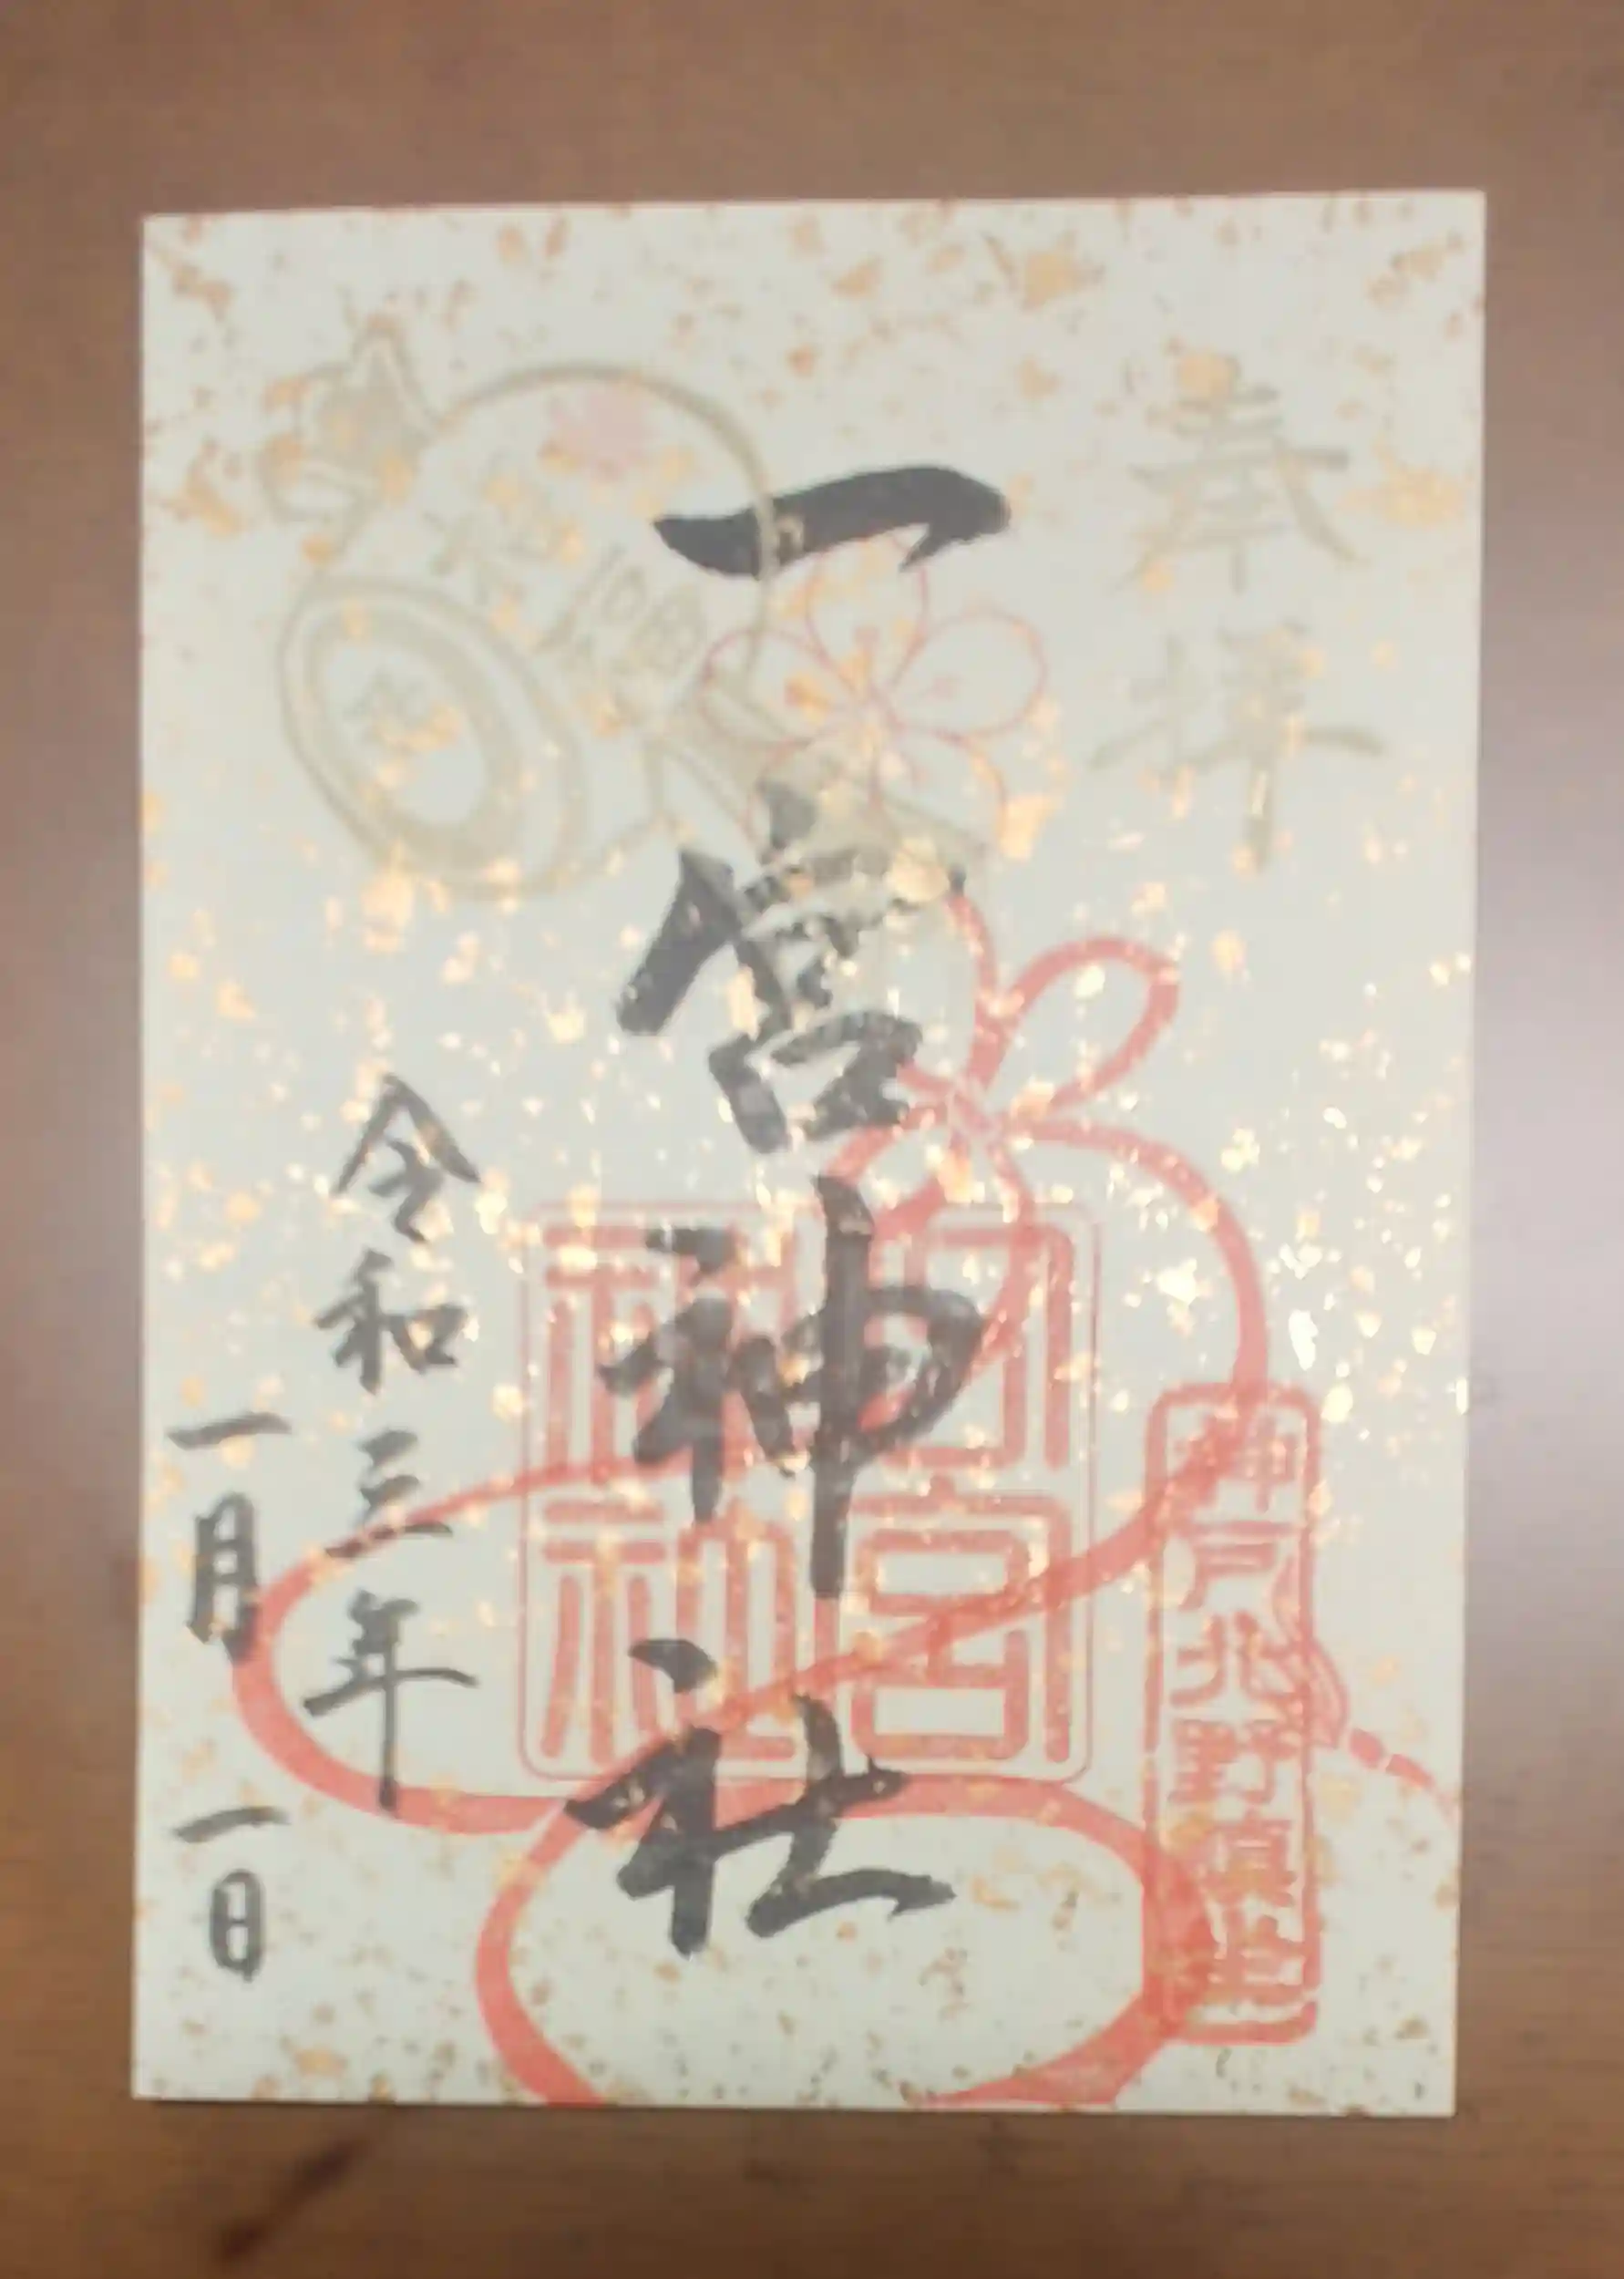 奉拝
一宮神社
一宮
神社
神戸北野鎮座
令和三年
一月一日